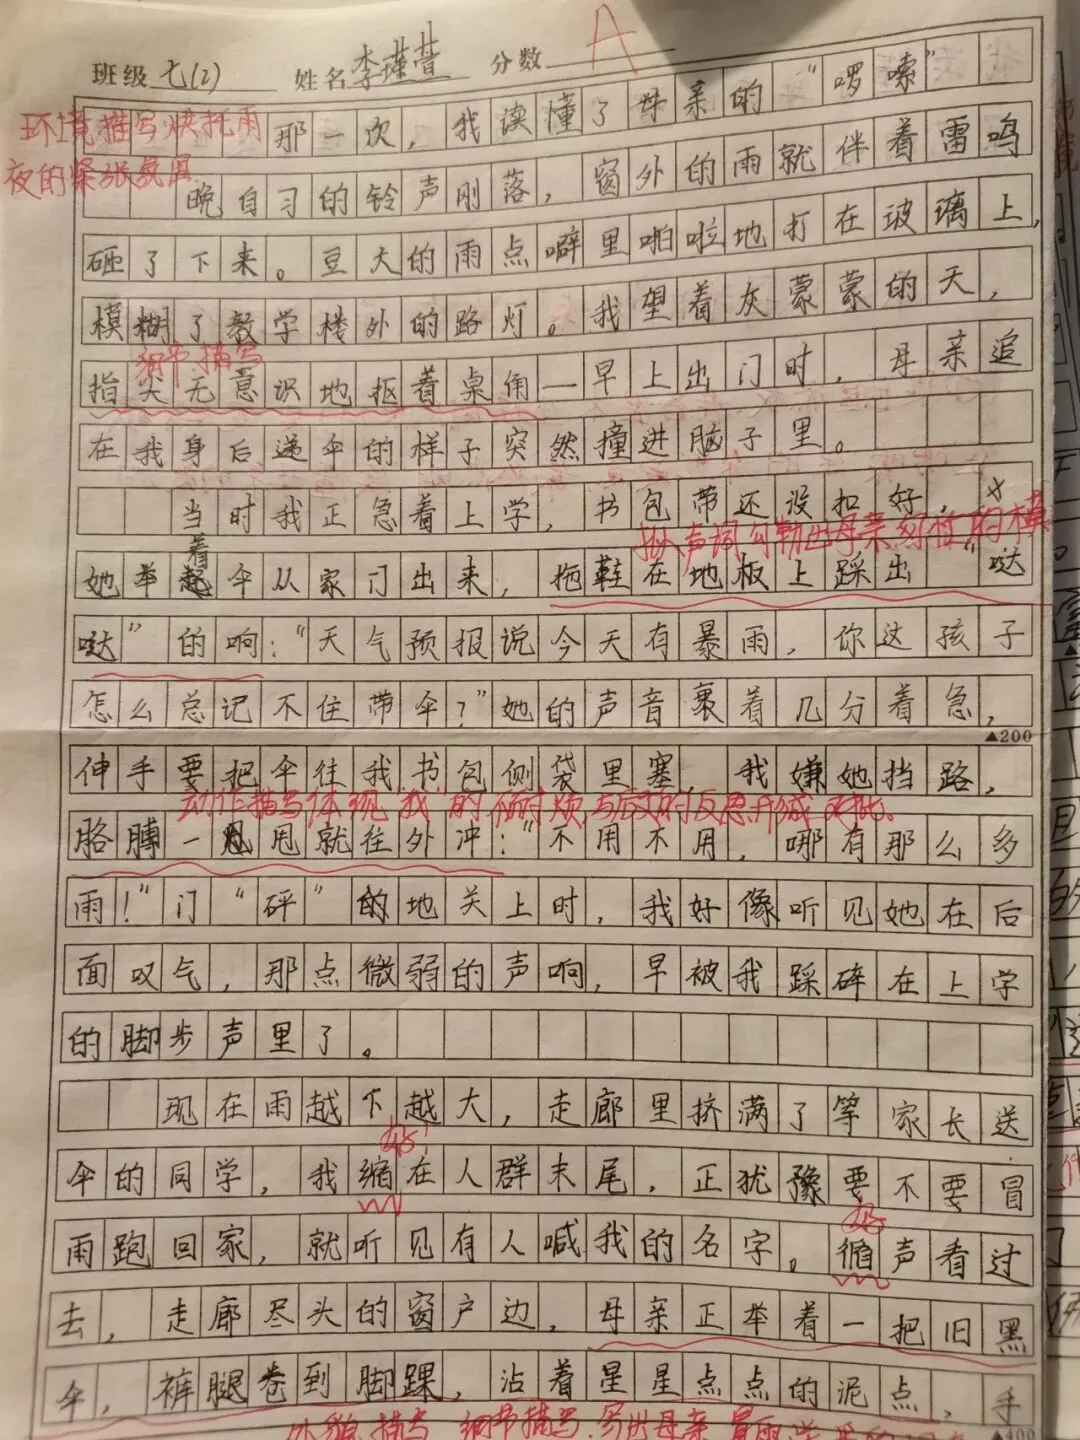 班级 七(2) 姓名 李瑾萱 分数 A
环境描写烘托雨
夜的紧张氛围
那一次，我读懂了母亲的“啰嗦”
晚自习的铃声刚落，窗外的雨就伴着雷鸣
砸了下来。豆大的雨点噼里啪啦地打在玻璃上，
模糊了教学楼外的路灯。我望着灰蒙蒙的天，
细节描写
指尖无意识地抠着桌角—早上出门时，母亲追
在我身后递伞的样子突然撞进脑子里。
当时我正急着上学，书包带还没扣好，
拟声词勾勒出母亲匆忙的模
着
她举伞从家门出来，拖鞋在地板上踩出“哒
哒”的响：“天气预报说今天有暴雨，你这孩子
怎么总记不住带伞？”她的声音裹着几分着急，
▲200
伸手要把伞往我书包侧袋里塞，我嫌她挡路，
动作描写体现“我”的不耐烦，与后文的反思形成对比。
胳膊一甩就往外冲：“不用不用，哪有那么多
雨！”门“砰”的地关上时，我好像听见她在后
面叹气，那点微弱的声响，早被我踩碎在上学
的脚步声里了。
现在雨越下越大，走廊里挤满了等家长送
好！
伞的同学，我缩在人群末尾，正犹豫要不要冒
好
雨跑回家，就听见有人喊我的名字。循声看过
去，走廊尽头的窗户边，母亲正举着一把旧黑
伞，裤腿卷到脚踝，沾着星星点点的泥点，手
▲400
外貌描写 细节描写，写出母亲冒雨